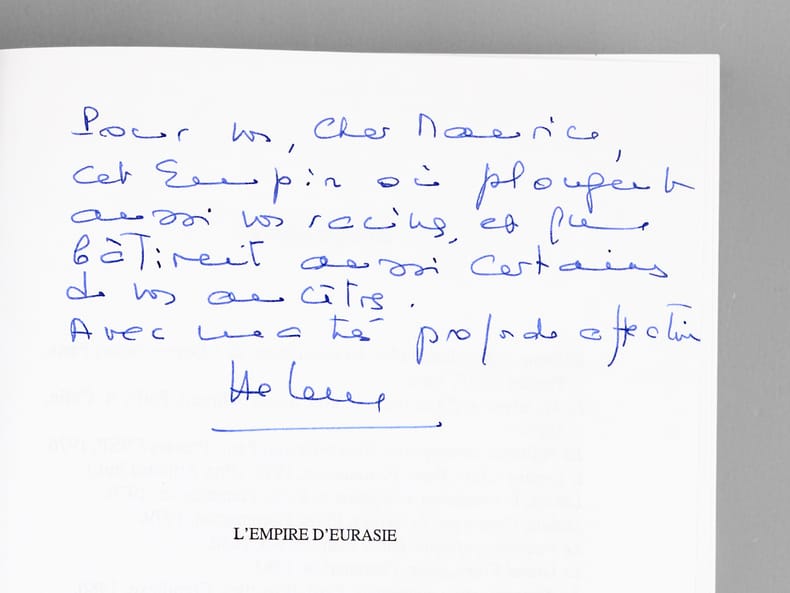 Pour vos, Cher Maurice,
cet Empire où plongent
aussi vos racines, et que
bâtirent aussi certains
de vos ancêtres.
Avec ma très profonde affection
Helene
L'EMPIRE D'EURASIE